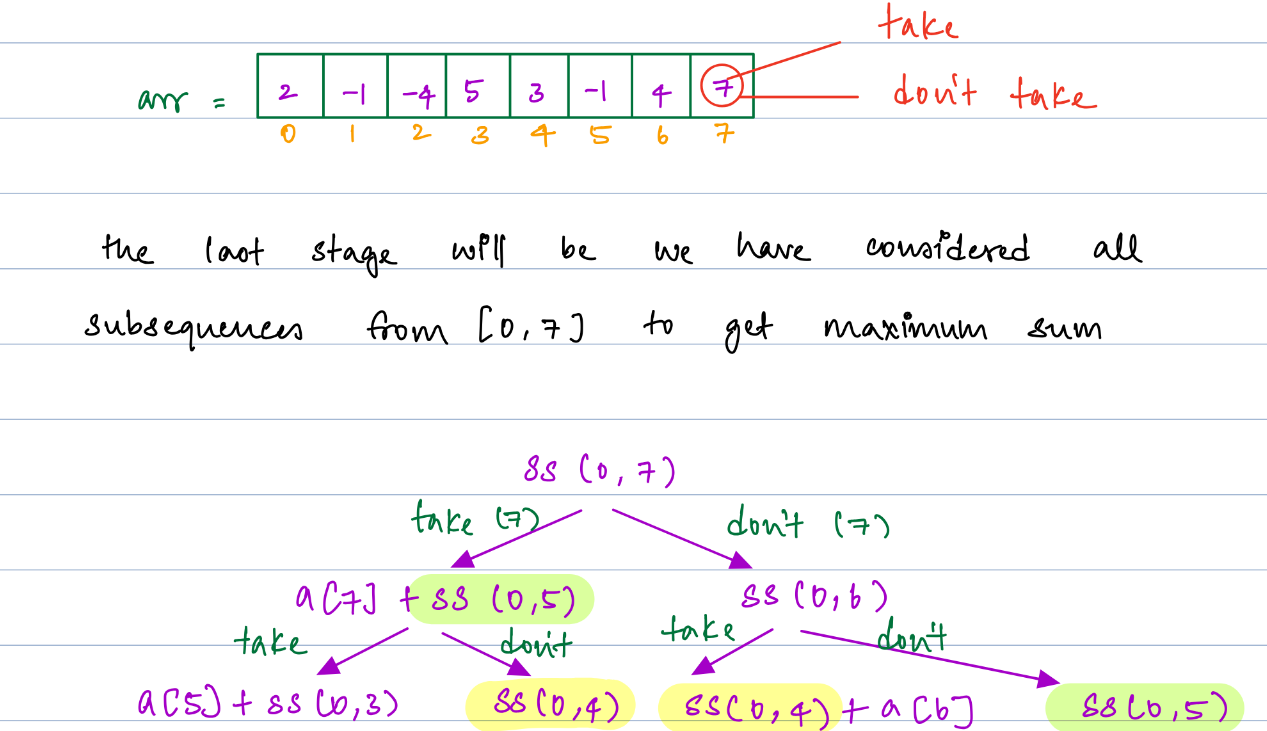 take
arr = 2 -1 -4 5 3 -1 4 7 don't take
0 1 2 3 4 5 6 7
the last stage will be we have considered all
subsequences from [0,7] to get maximum sum
ss (0,7)
take (7) don't (7)
a[7] + ss (0,5) ss (0,6)
take don't take don't
a[5] + ss (0,3) ss(0,4) ss(0,4) + a[6] ss(0,5)